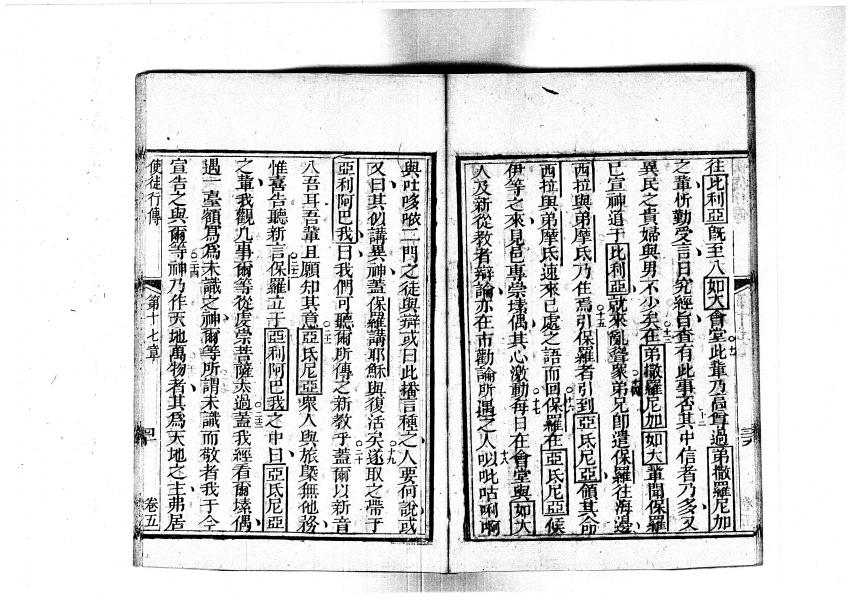 往比利亞既至入如大會堂此輩乃居貴過弟撒羅尼加
之輩忻勤受言日究經旨查有此事否其中信者乃多又
異民之貴婦與男不少矣在弟撒羅尼加如大輩聞保羅
已宣神道于比利亞就來亂聳衆弟兄即遣保羅往海邊
西拉與弟摩氐乃住焉引保羅者引到亞氐尼亞領其命
西拉與弟摩氐速來已處之語而回保羅在亞氐尼亞候
伊等之來見邑專崇塐偶其心激動每日在會堂與如大
人及新從教者辯論亦在市勸論所遇之人以吡咕唎啊
與吐哆㗭二門之徒與辯或曰此播言種之人要何說或
又曰其似講異神蓋保羅講耶穌與復活矣遂取之帶于
亞利阿巴我曰我們可聽爾所傳之新教乎蓋爾以新音
入吾耳吾輩且願知其意亞氐尼亞衆人與旅槩無他務
惟喜告聽新言保羅立于亞利阿巴我之中曰亞氐尼亞
之輩我觀凡事爾等從虔崇菩薩太過蓋我經看爾塐偶
遇一臺額寫為未識之神爾等所謂未識而敬者我于今
宣告之與爾等神乃作天地萬物者其為天地之主弗居
使徒行傳 第十七章 卷五